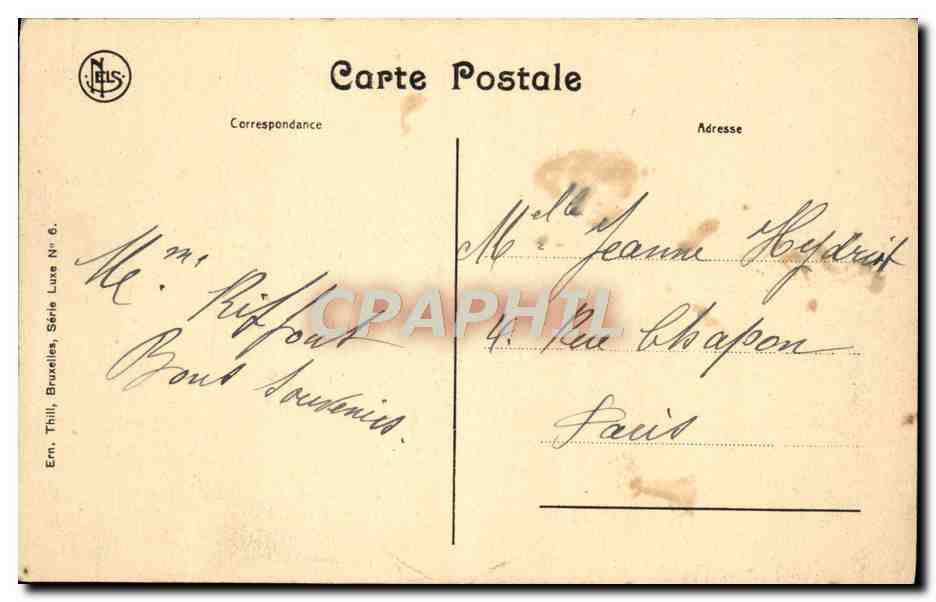 NELS
Carte Postale
Correspondance
Adresse
Ern. Thill, Bruxelles, Série Luxe No 6.
Bons Souvenirs.
Melle Jeanne Hydriot
4. Rue Chapon
Paris
CPAPHIL